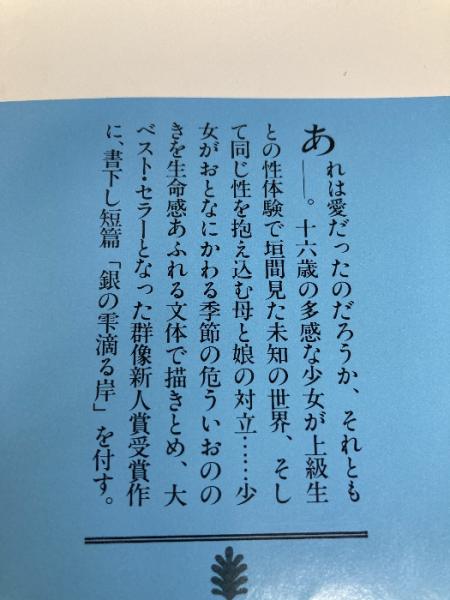 あれは愛だったのだろうか、それとも
――。十六歳の多感な少女が上級生
との性体験で垣間見た未知の世界、そし
て同じ性を抱え込む母と娘の対立……少
女がおとなにかわる季節の危ういおのの
きを生命感あふれる文体で描きとめ、大
ベスト・セラーとなった群像新人賞受賞作
に、書下し短篇「銀の雫滴る岸」を付す。